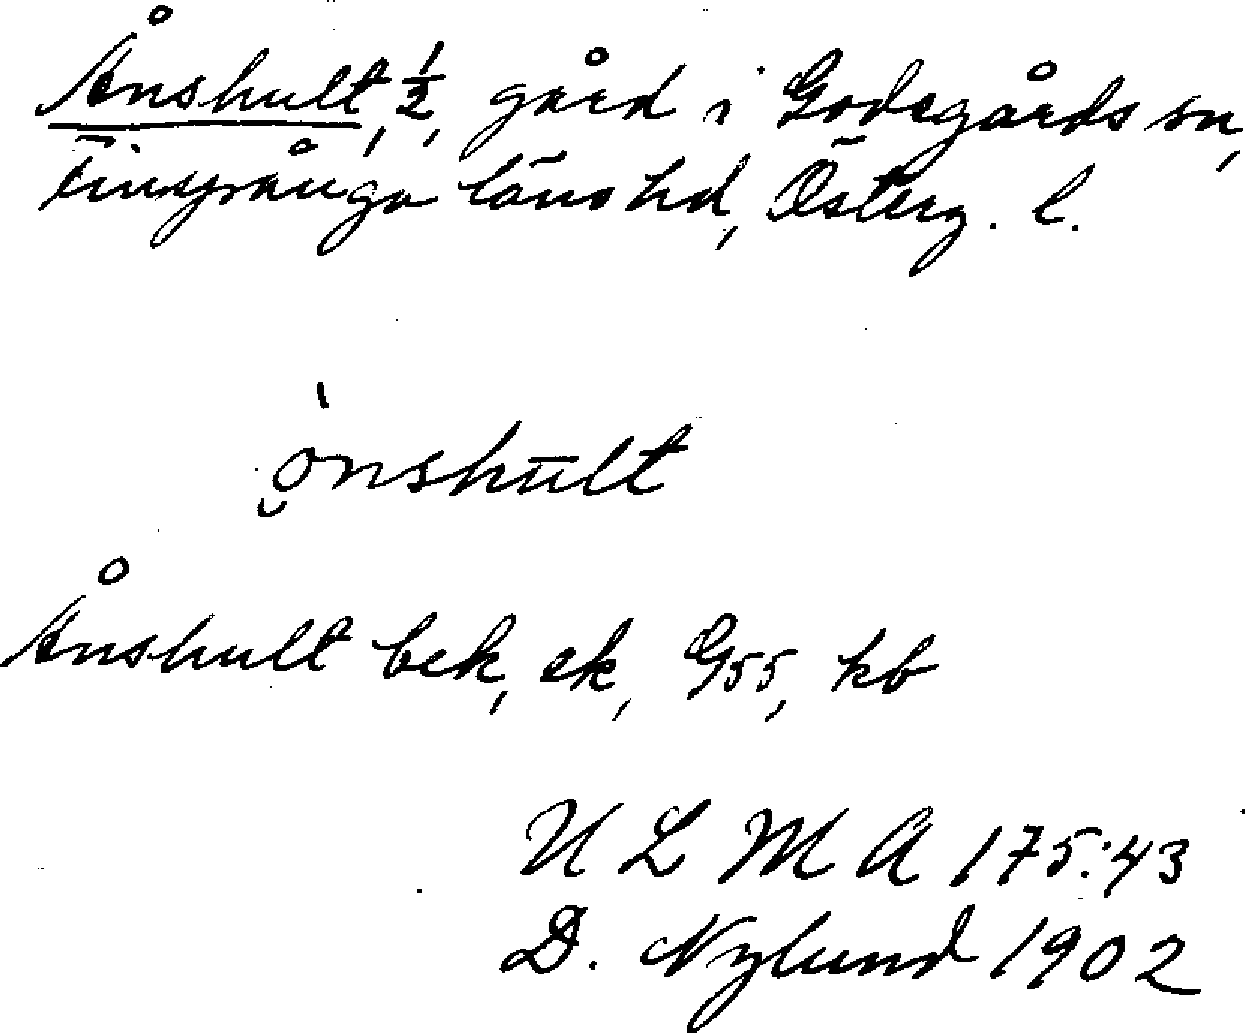 Ånshult, 1/2, gård i Godegårds sn,
Finspånga läns hd, Österg. l.
ò̜nshūlt
Ånshult bek, ek, G55, kb
ULMA 175:43
D. Nylund 1902